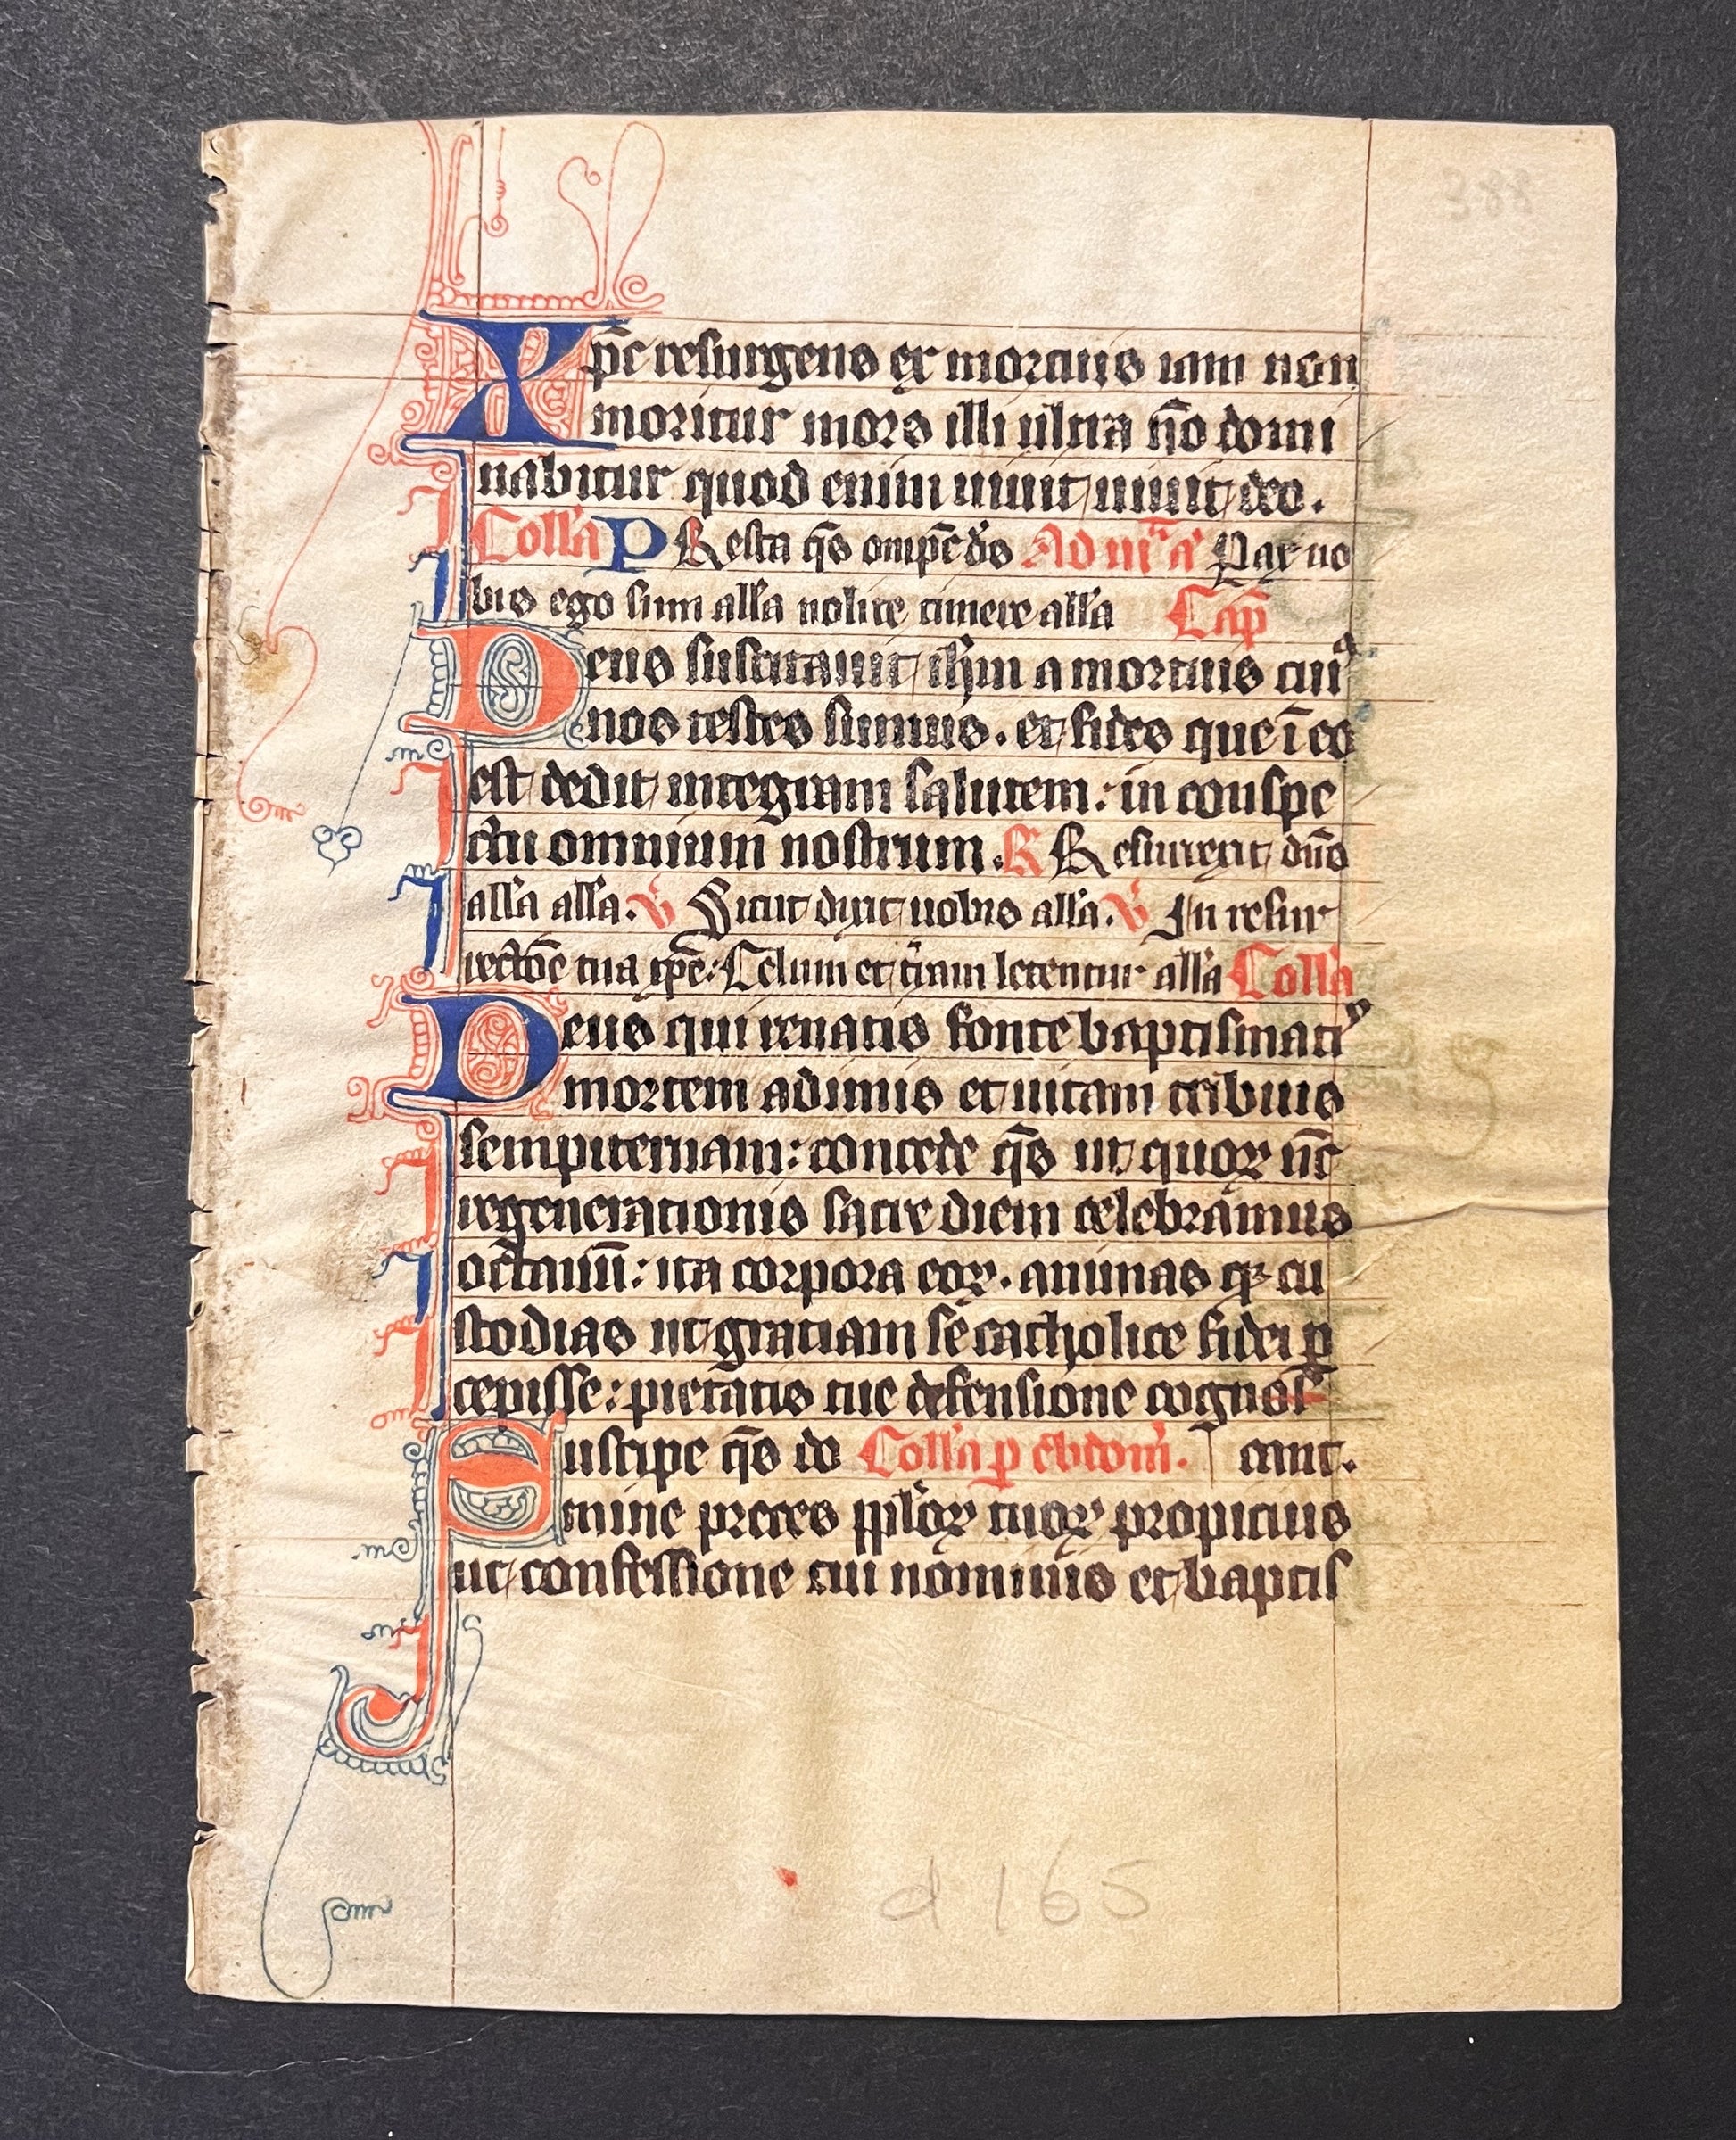 388
Xp̄c resurgens ex mortuis iam non
moritur mors illi ultra n̄o domi
nabitur quod enim uiuit uiuit deo.
Coll'a PResta q̄s omp̄c d's Ad m̄'a' Pax uo
bis ego sum all'a nolite timere all'a Cap̄
Deus suscitauit ih̄m a mortuis cui'
nos testes sumus. et fides que ī eo
est dedit integram salutem: in conspe
ctu omnium nostrum. R Resurrexit dn̄s
all'a all'a. V Sicut dixit uobis all'a. V In resur
rectōe tua xp̄e: Celum et t'ram letentur all'a Coll'a
Deus qui renatis fonte baptismatꝭ
mortem adimis et uitam tribuis
sempiternam: concede q̄s ut quoꝝ nc̄
regenerationis sacre diem celebramus
octauū: ita corpora eoꝝ. animas qꝫ cu
stodias ut gratiam se catholice fidei ꝑ
cepisse: pietatis tue defensione cognos̄
Suscipe q̄s do Coll'a ꝑ ebdom̄. cant.
mine preces ppl'oꝝ tuoꝝ propicius
ut confessione tui nominis et baptis
d 165